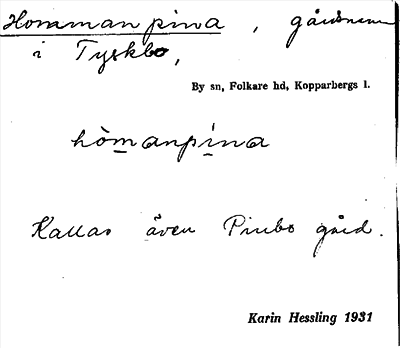 Hommanpina, gårdsnamn
i Tyskbo,
By sn, Folkare hd, Kopparbergs l.
hòmanpina
Kallas även Pinbo gård.
Karin Hessling 1931